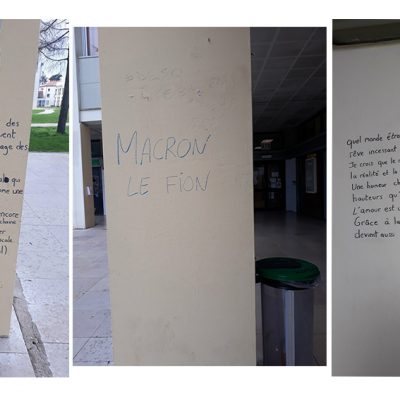 des
vent
age des
qui
me une
ncore
chaine
er
cale
l)
MACRON
LE FION
quel monde étro
rêve incessant
Je crois que le
la réalité et la
Une humeur ch
hauteurs qu'
L'amour est u
Grâce à la
devient aussi